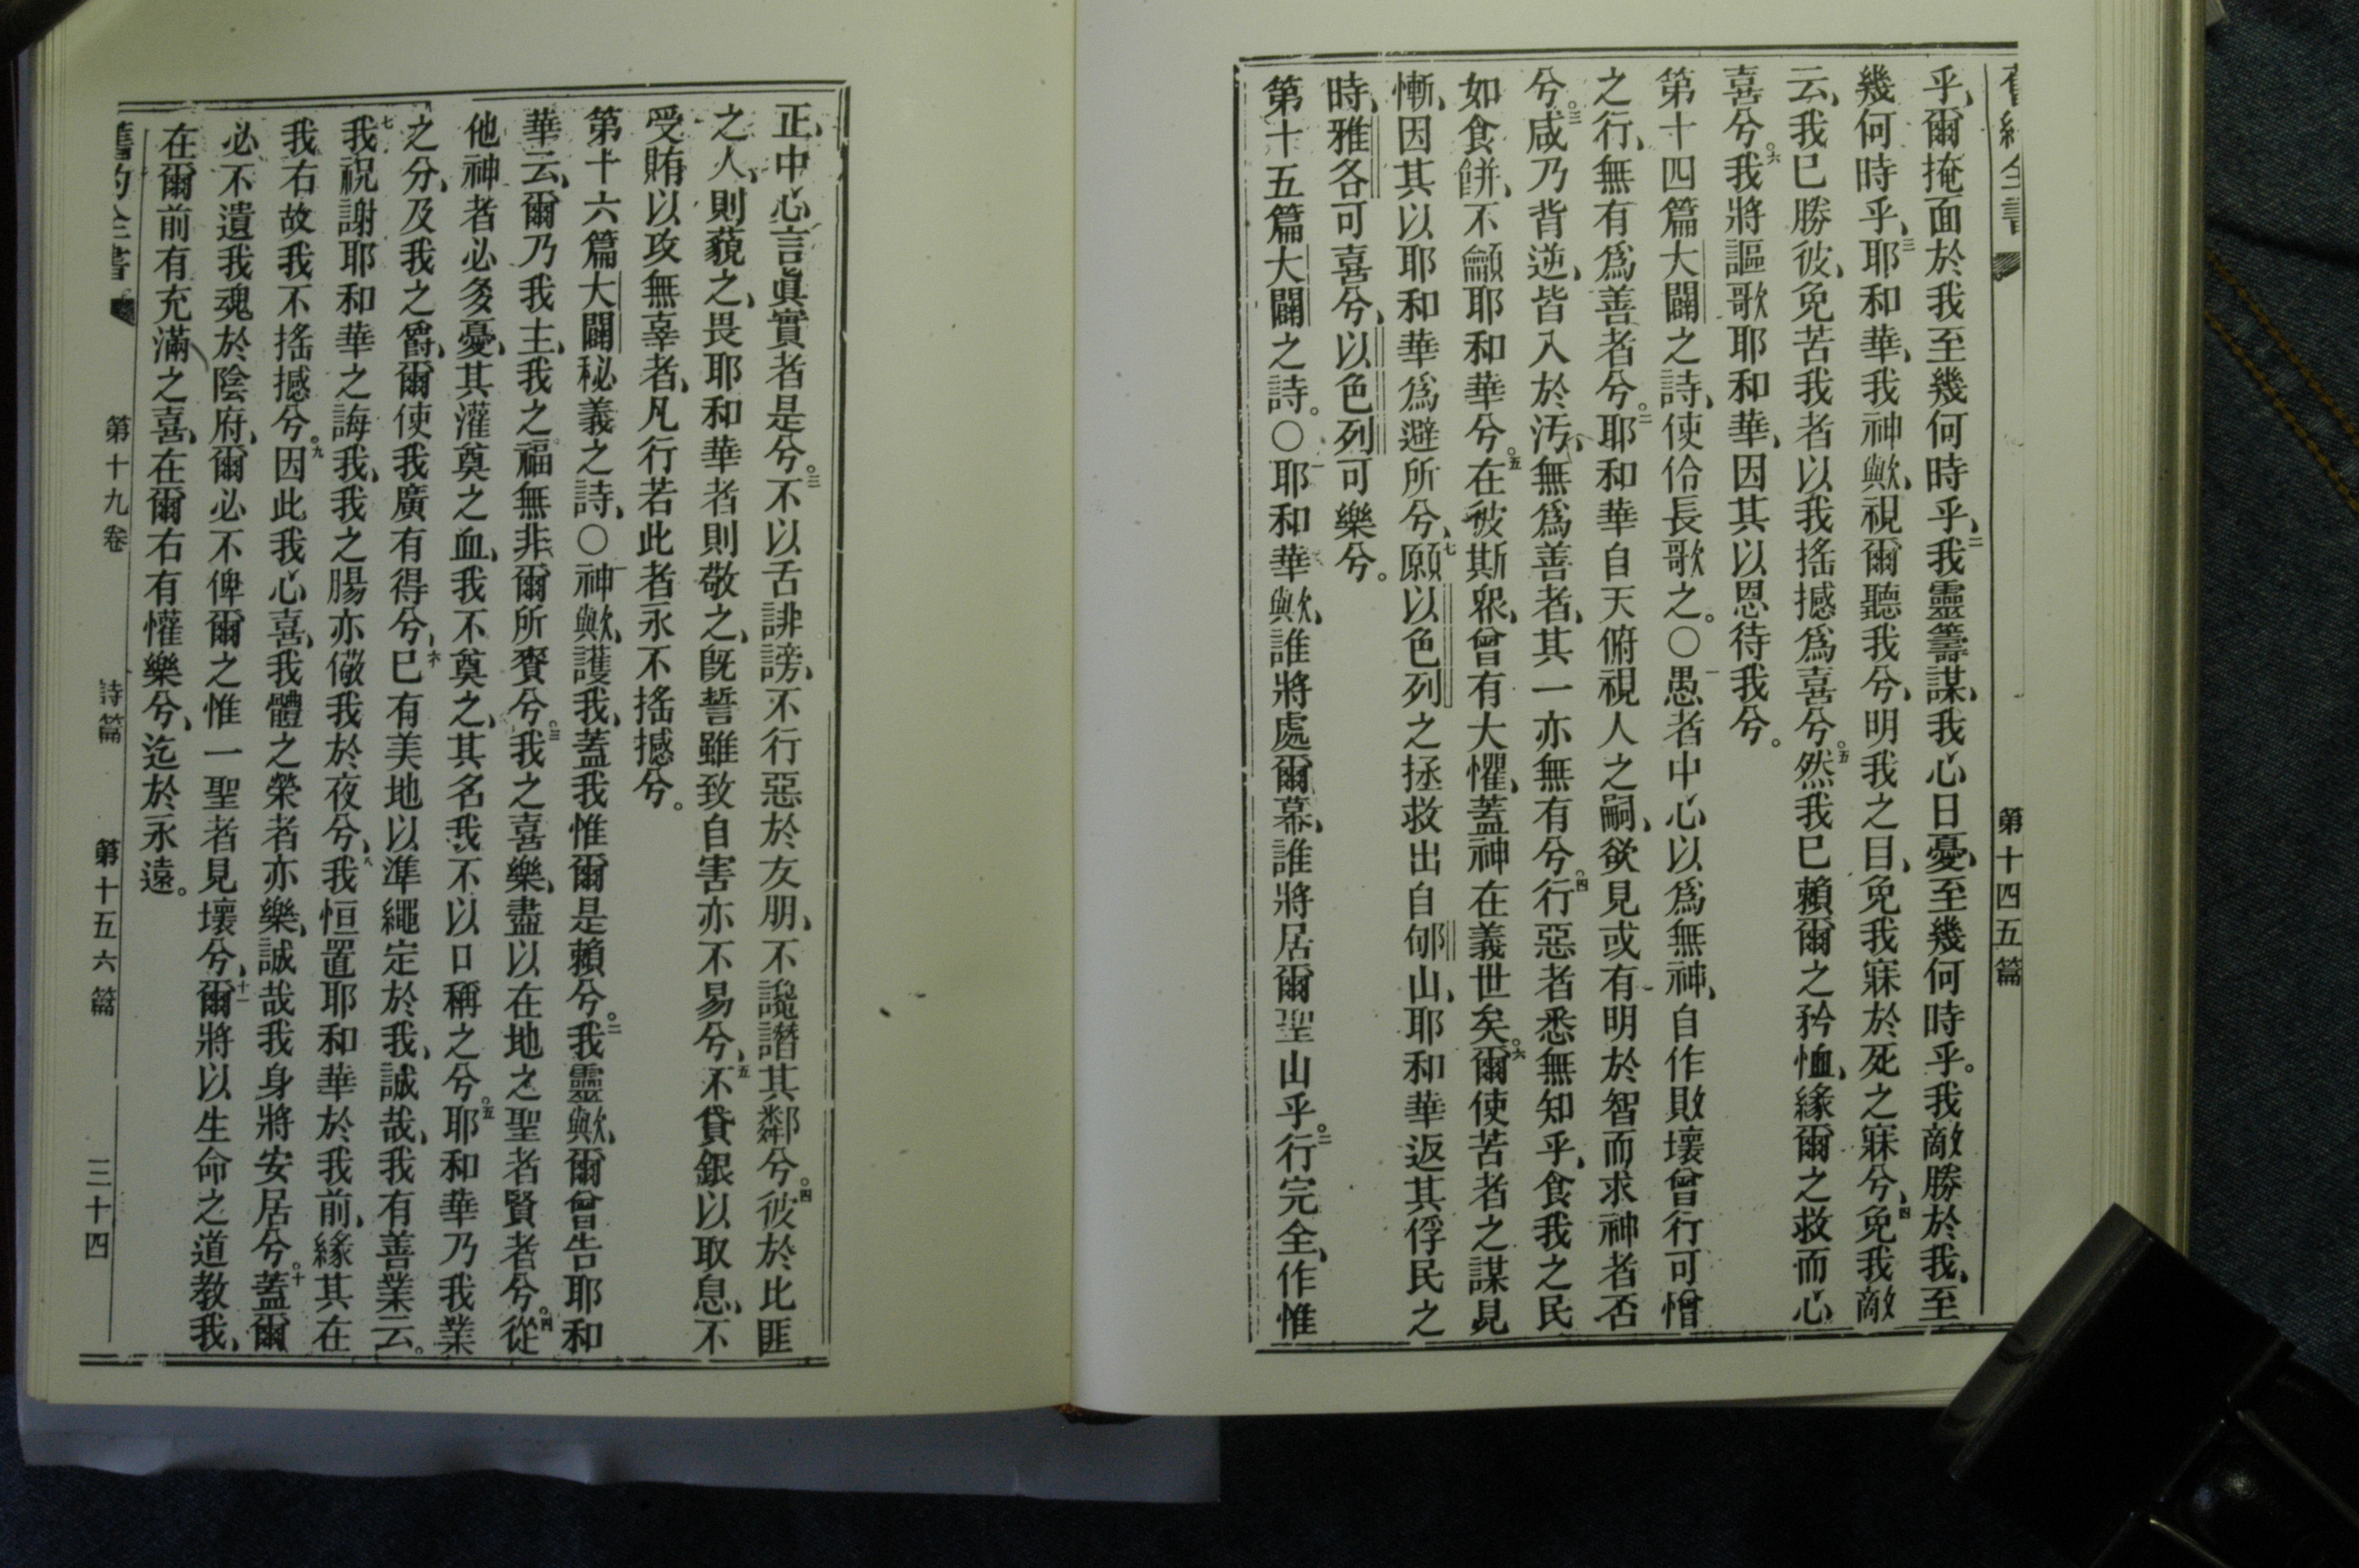 乎、爾掩面於我至幾何時乎、二我靈籌謀、我心日憂、至幾何時乎。我敵勝於我、至
幾何時乎、三耶和華、我神歟、視爾聽我兮、明我之目、免我寐於死之寐兮、四免我敵
云、我已勝彼、免苦我者以我搖撼爲喜兮。五然我已賴爾之矜恤、緣爾之救而心
喜兮。六我將謳歌耶和華、因其以恩待我兮。
第十四篇大闢之詩、使伶長歌之。○一愚者中心以爲無神、自作敗壞曾行可憎
之行、無有爲善者兮。二耶和華自天俯視人之嗣、欲見或有明於智而求神者否
兮。三咸乃背逆、皆入於汚、無爲善者、其一亦無有兮。四行惡者悉無知乎、食我之民
如食餅、不龥耶和華兮。五在彼斯衆、曾有大懼、蓋神在義世矣。六爾使苦者之謀見
慚、因其以耶和華爲避所兮、七願以色列之拯救出自郇山、耶和華返其俘民之
時、雅各可喜兮、以色列可樂兮。
第十五篇大闢之詩。○一耶和華歟、誰將處爾幕、誰將居爾聖山乎。二行完全、作惟
第十四五篇
正、中心言眞實者是兮。三不以舌誹謗、不行惡於友朋、不讒譖其鄰兮。四彼於比匪
之人、則藐之、畏耶和華者則敬之、旣誓雖致自害亦不易兮、五不貸銀以取息、不
受賄以攻無辜者、凡行若此者永不搖撼兮。
第十六篇大闢秘義之詩、○一神歟、護我、蓋我惟爾是賴兮。二我靈歟、爾曾告耶和
華云、爾乃我主、我之福無非爾所賚兮。三我之喜樂、盡以在地之聖者賢者兮。四從
他神者必多憂、其灌奠之血、我不奠之、其名我不以口稱之兮。五耶和華乃我業
之分、及我之爵、爾使我廣有得兮、六已有美地以準繩定於我、誠哉、我有善業云。
七我祝謝耶和華之誨我、我之腸亦儆我於夜兮、八我恒置耶和華於我前、緣其在
我右故我不搖撼兮。九因此我心喜、我體之榮者亦樂、誠哉我身將安居兮。十蓋爾
必不遺我魂於陰府、爾必不俾爾之惟一聖者見壞兮、十一爾將以生命之道教我、
在爾前有充滿之喜、在爾右有懽樂兮、迄於永遠。
舊約全書 第十九卷 詩篇 第十五六篇 三十四